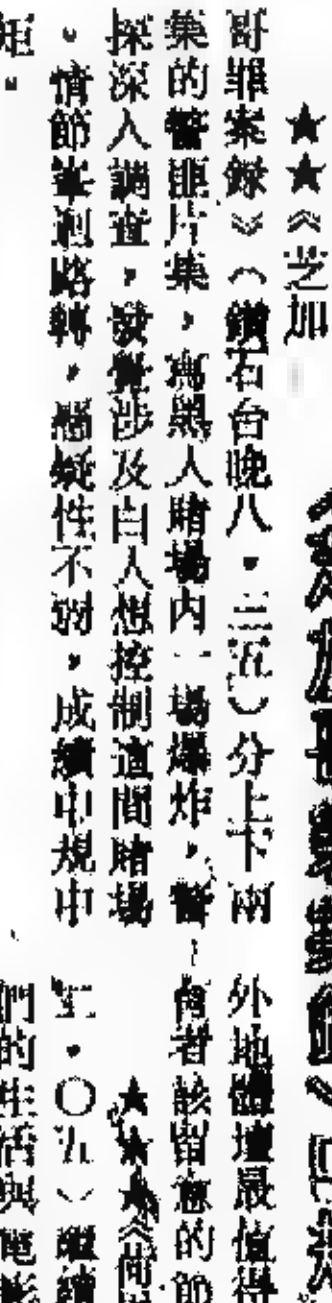 ★★《芝加
哥罪案錄》（鑽石台晚八・三五）分上下兩
集的警匪片集，寫黑人賭場內一場爆炸，警
探深入調查，發覺涉及白人想控制這間賭場
。情節峯迴路轉，懸疑性不弱，成績中規中
矩。
外地體壇最值得
者該留意的節
★★《尚
五・〇五）繼續
們的生活與電影